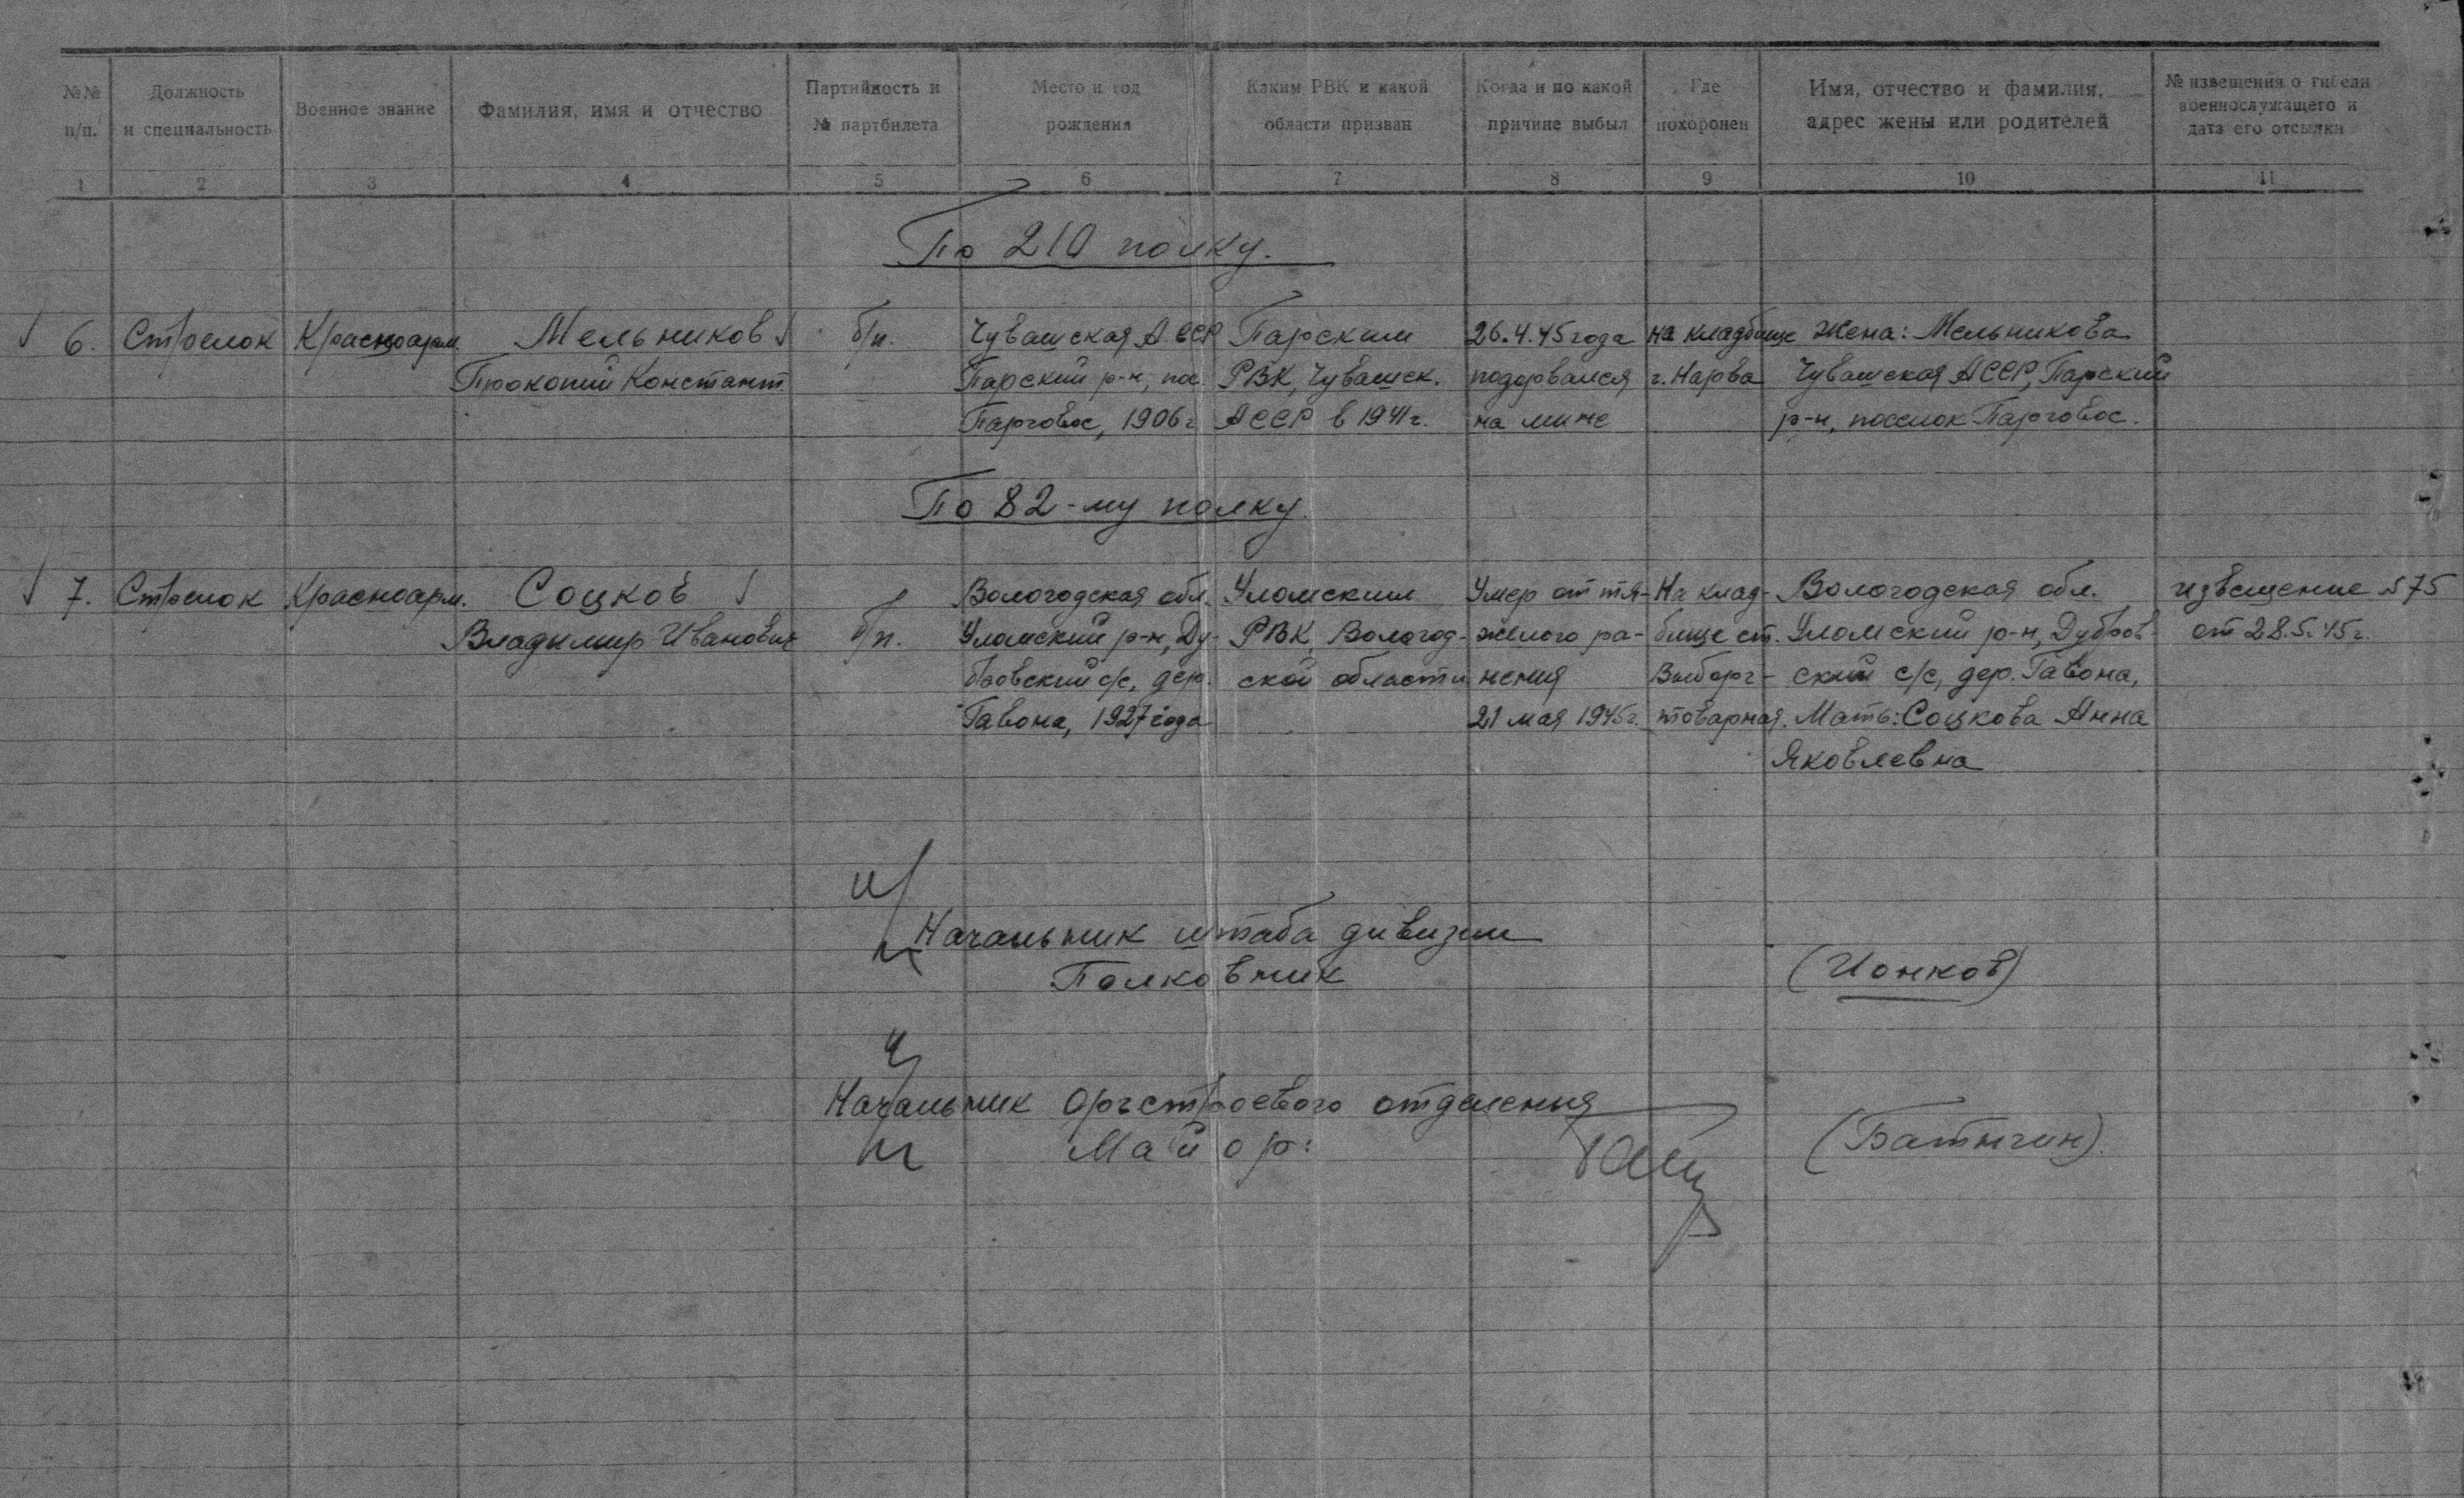 №№ п/п.
Должность и специальность
Военное звание
Фамилия, имя и отчество
Партийность и № партбилета
Место и год рождения
Каким РВК и какой области призван
Когда и по какой причине выбыл
Где похоронен
Имя, отчество и фамилия, адрес жены или родителей
№ извещения о гибели военнослужащего и дата его отсылки
1 2 3 4 5 6 7 8 9 10 11
По 210 полку.
6. Стрелок Красноарм. Мельников б/п. Чувашская АССР Парским 26.4.45 года на кладбище Жена: Мельникова
Прокопий Констант. Парский р-н, пос. РВК, Чувашск. подорвался г. Нарва Чувашская АССР, Парский
Парговос, 1906 г АССР в 1941 г. на мине р-н, поселок Парговос.
По 82-му полку.
7. Стрелок Красноарм. Соцков Вологодская обл. Уломским Умер от тя- На клад- Вологодская обл. извещение №75
Владимир Иванович б/п. Уломский р-н, Ду- РВК, Вологод- желого ра- бище ст. Уломский р-н, Дубров- от 28.5.45 г.
бровский с/с, дер. ской области нения Выборг- ский с/с, дер. Гавона,
Гавона, 1927 года 21 мая 1945 г. товарная. Мать: Соцкова Анна
Яковлевна
Начальник штаба дивизии
Полковник (Ионков)
Начальник Оргстроевого отделения
Майор: (Батыгин).